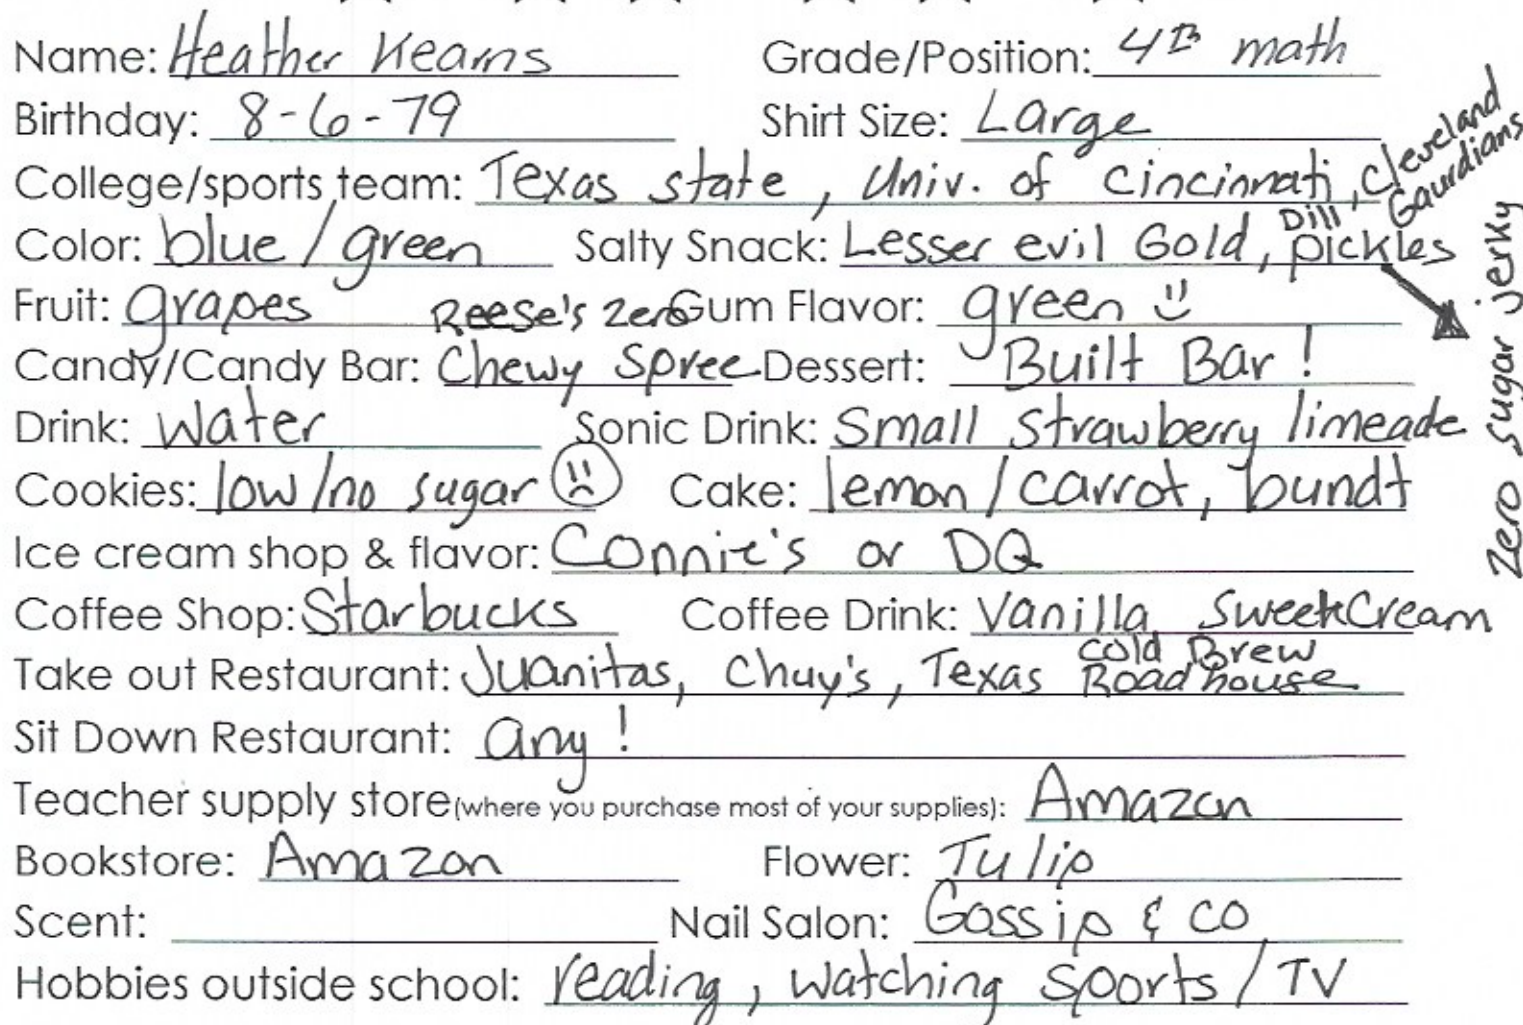 Name: Heather Kearns Grade/Position: 4th math
Birthday: 8-6-79 Shirt Size: Large
College/sports team: Texas state, Univ. of Cincinnati, Cleveland Gaurdians
Color: blue/green Salty Snack: Lesser evil Gold, Dill pickles
zero sugar jerky
Fruit: grapes Gum Flavor: green
Candy/Candy Bar: Reese's zero Chewy Spree Dessert: Built Bar!
Drink: Water Sonic Drink: Small Strawberry limeade
Cookies: low/no sugar Cake: lemon/carrot, bundt
Ice cream shop & flavor: Connie's or DQ
Coffee Shop: Starbucks Coffee Drink: Vanilla SweetCream cold Brew
Take out Restaurant: Juanitas, Chuy's, Texas Roadhouse
Sit Down Restaurant: any!
Teacher supply store (where you purchase most of your supplies): Amazon
Bookstore: Amazon Flower: Tulip
Scent: Nail Salon: Gossip & CO
Hobbies outside school: reading, watching sports/TV